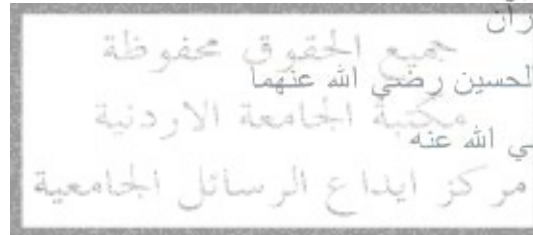 رآن
جميع الحقوق محفوظة
لحسين رضي الله عنهما
مكتبة الجامعة الاردنية
ي الله عنه
مركز ايداع الرسائل الجامعية